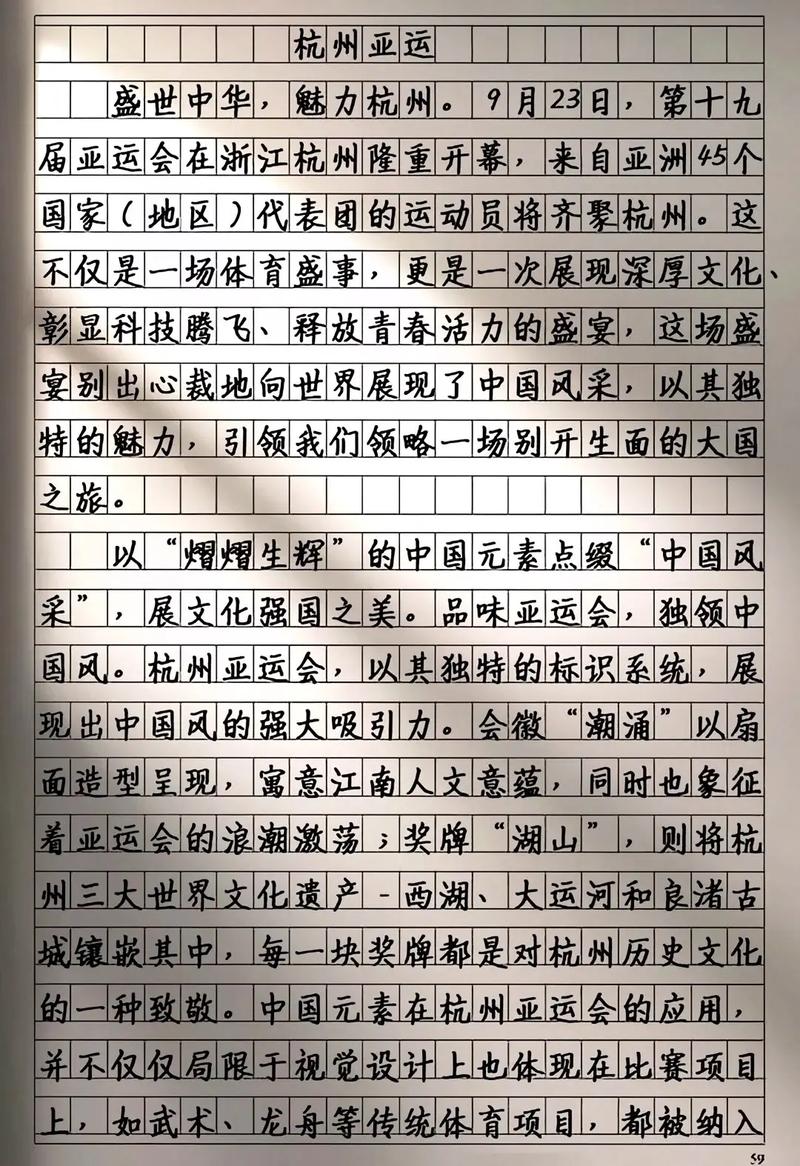 杭州亚运
盛世中华，魅力杭州。9月23日，第十九
届亚运会在浙江杭州隆重开幕，来自亚洲45个
国家（地区）代表团的运动员将齐聚杭州。这
不仅是一场体育盛事，更是一次展现深厚文化、
彰显科技腾飞、释放青春活力的盛宴，这场盛
宴别出心裁地向世界展现了中国风采，以其独
特的魅力，引领我们领略一场别开生面的大国
之旅。
以“熠熠生辉”的中国元素点缀“中国风
采”，展文化强国之美。品味亚运会，独领中
国风。杭州亚运会，以其独特的标识系统，展
现出中国风的强大吸引力。会徽“潮涌”以扇
面造型呈现，寓意江南人文意蕴，同时也象征
着亚运会的浪潮激荡；奖牌“湖山”，则将杭
州三大世界文化遗产-西湖、大运河和良渚古
城镶嵌其中，每一块奖牌都是对杭州历史文化
的一种致敬。中国元素在杭州亚运会的应用，
并不仅仅局限于视觉设计上也体现在比赛项目
上，如武术、龙舟等传统体育项目，都被纳入
59